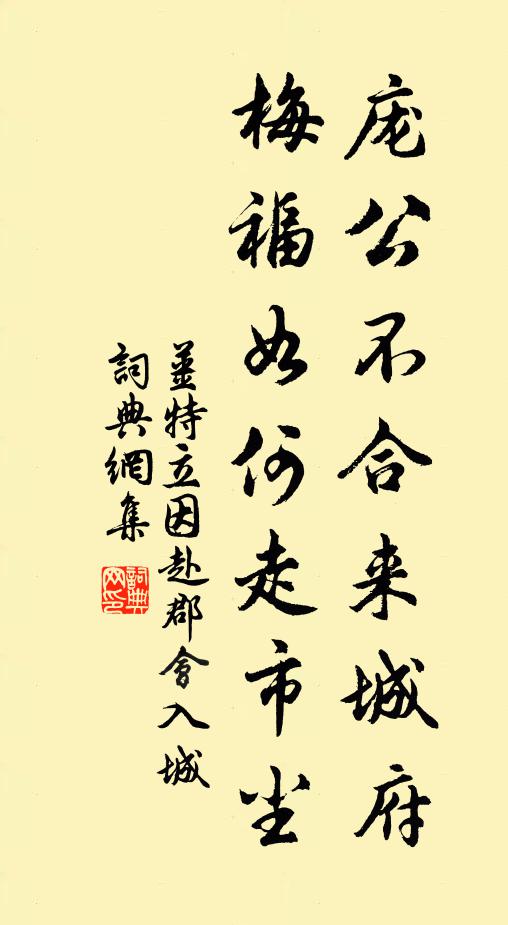 庞公不合来城府
梅福如何走市尘
姜特立因赴郡會入城
詞典網集
詞典网印